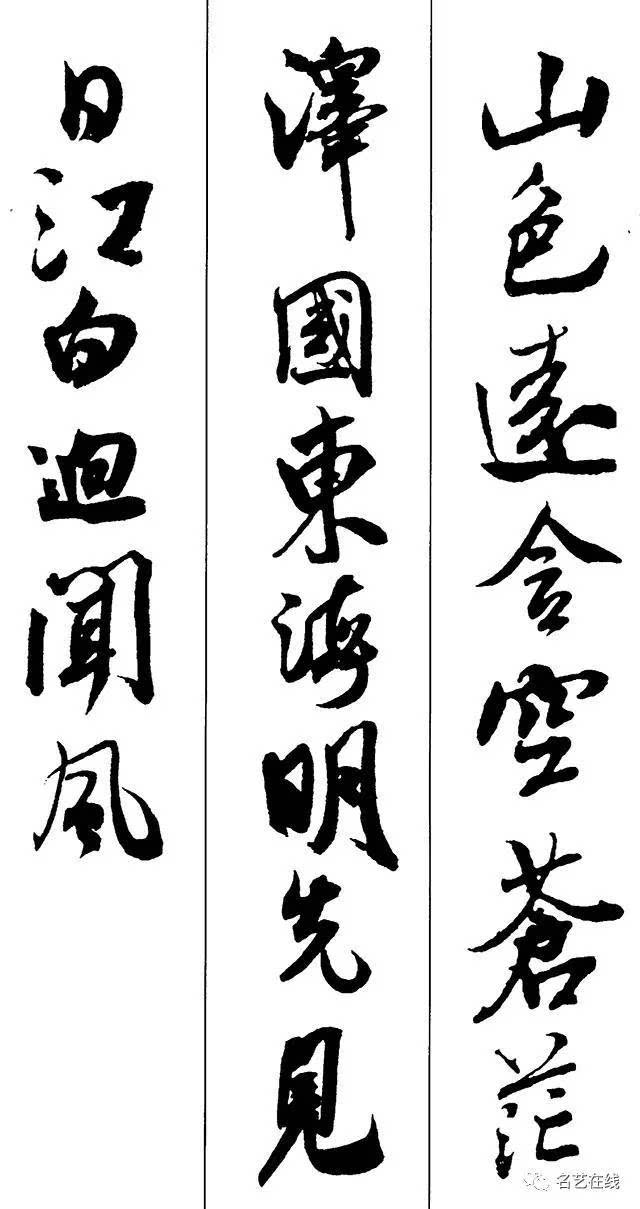 山色遠含空蒼茫
澤國東海明先見
日江白迥聞風
名艺在线